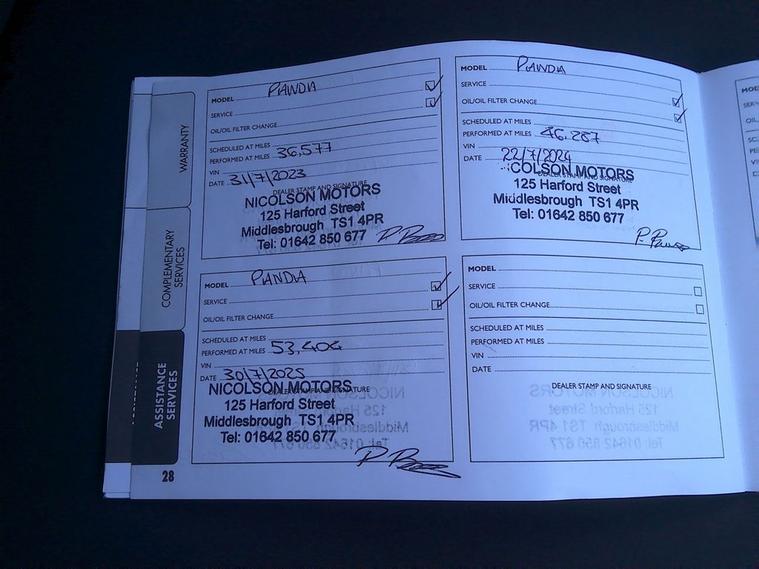 WARRANTY
COMPLEMENTARY SERVICES
ASSISTANCE SERVICES
MODEL PANDA
SERVICE
OIL/OIL FILTER CHANGE
SCHEDULED AT MILES
PERFORMED AT MILES 36,577
VIN
DATE 31/7/2023
DEALER STAMP AND SIGNATURE
NICOLSON MOTORS
125 Harford Street
Middlesbrough TS1 4PR
Tel: 01642 850 677
MODEL PANDA
SERVICE
OIL/OIL FILTER CHANGE
SCHEDULED AT MILES
PERFORMED AT MILES 46,287
VIN
DATE 22/7/2024
DEALER STAMP AND SIGNATURE
COLSON MOTORS
125 Harford Street
Middlesbrough TS1 4PR
Tel: 01642 850 677
MODEL PANDA
SERVICE
OIL/OIL FILTER CHANGE
SCHEDULED AT MILES
PERFORMED AT MILES 53,404
VIN
DATE 30/7/2025
DEALER STAMP AND SIGNATURE
NICOLSON MOTORS
125 Harford Street
Middlesbrough TS1 4PR
Tel: 01642 850 677
MODEL
SERVICE
OIL/OIL FILTER CHANGE
SCHEDULED AT MILES
PERFORMED AT MILES
VIN
DATE
DEALER STAMP AND SIGNATURE
28